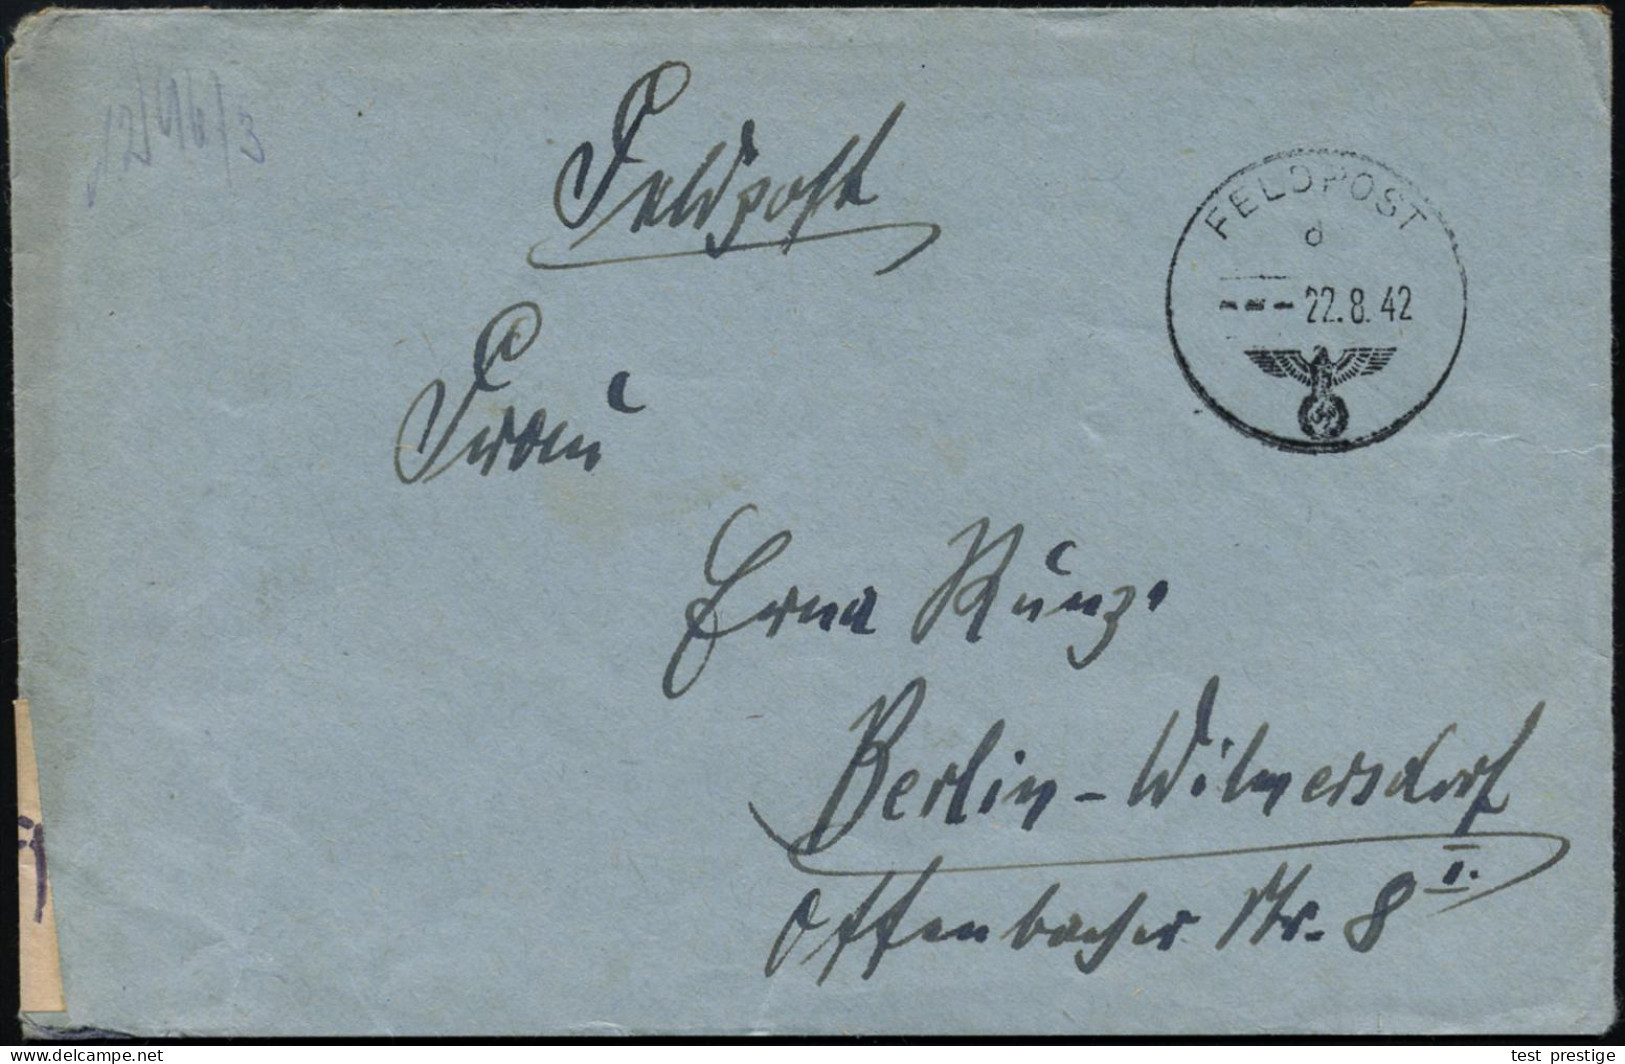 12/96/3
Feldpost
FELDPOST
d
--- 22.8.42
Frau
Erna Kunze
Berlin-Wilmersdorf
Offenbacher Str. 8 I.
test_prestige